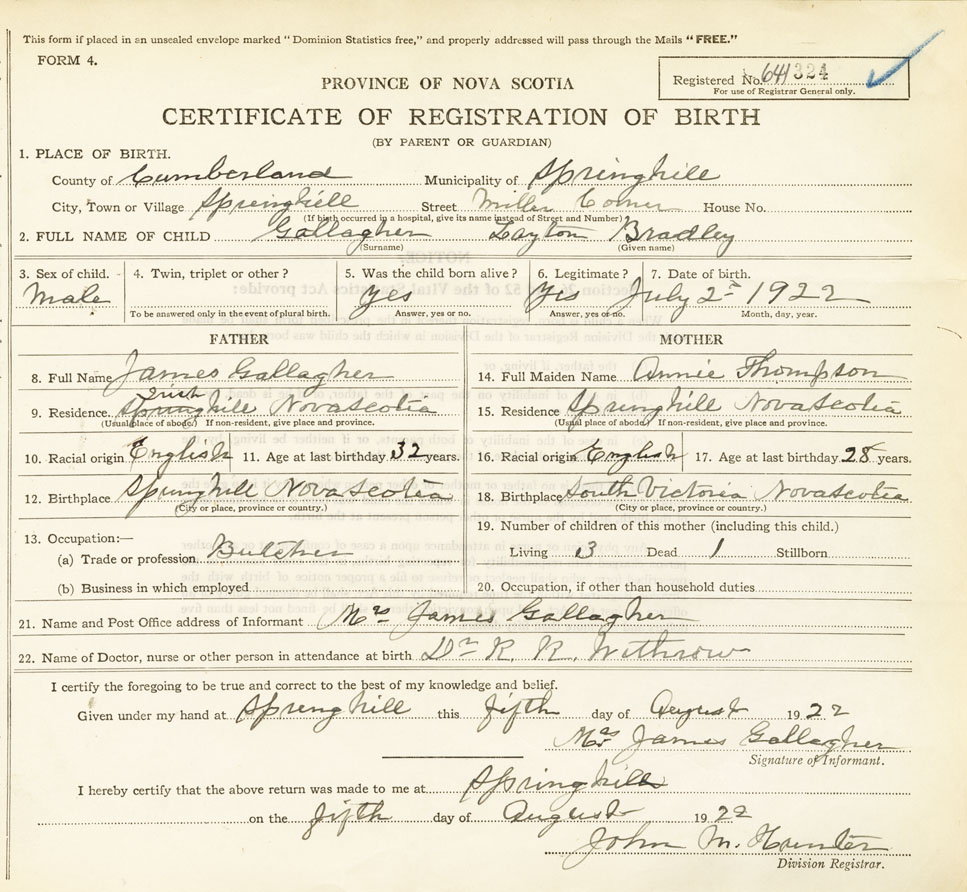 This form if placed in an unsealed envelope marked "Dominion Statistics free," and properly addressed will pass through the Mails "FREE."
FORM 4.
Registered No. 641324
For use of Registrar General only.
PROVINCE OF NOVA SCOTIA
CERTIFICATE OF REGISTRATION OF BIRTH
(BY PARENT OR GUARDIAN)
1. PLACE OF BIRTH.
County of Cumberland Municipality of Springhill
City, Town or Village Springhill Street Miller Corner House No.
(If birth occurred in a hospital, give its name instead of Street and Number)
2. FULL NAME OF CHILD Gallagher Layton Bradley
(Surname) (Given name)
3. Sex of child. 4. Twin, triplet or other? 5. Was the child born alive? 6. Legitimate? 7. Date of birth.
Male yes Yes July 2nd 1922
To be answered only in the event of plural birth. Answer, yes or no. Answer, yes or no. Month, day, year.
FATHER MOTHER
8. Full Name James Gallagher 14. Full Maiden Name Annie Thompson
Irish
9. Residence Springhill Nova Scotia 15. Residence Springhill Nova Scotia
(Usual place of abode) If non-resident, give place and province. (Usual place of abode) If non-resident, give place and province.
10. Racial origin English 11. Age at last birthday 32 years. 16. Racial origin English 17. Age at last birthday 28 years.
12. Birthplace Springhill Nova Scotia 18. Birthplace South Victoria Nova Scotia
(City or place, province or country.) (City or place, province or country.)
13. Occupation:— 19. Number of children of this mother (including this child.)
(a) Trade or profession Butcher Living 3 Dead 1 Stillborn
(b) Business in which employed 20. Occupation, if other than household duties
21. Name and Post Office address of Informant Mrs James Gallagher
22. Name of Doctor, nurse or other person in attendance at birth Dr R. R. Withrow
I certify the foregoing to be true and correct to the best of my knowledge and belief.
Given under my hand at Springhill this fifth day of August 1922
Mrs James Gallagher
Signature of Informant.
I hereby certify that the above return was made to me at Springhill
on the fifth day of August 1922
John M. Hunter
Division Registrar.